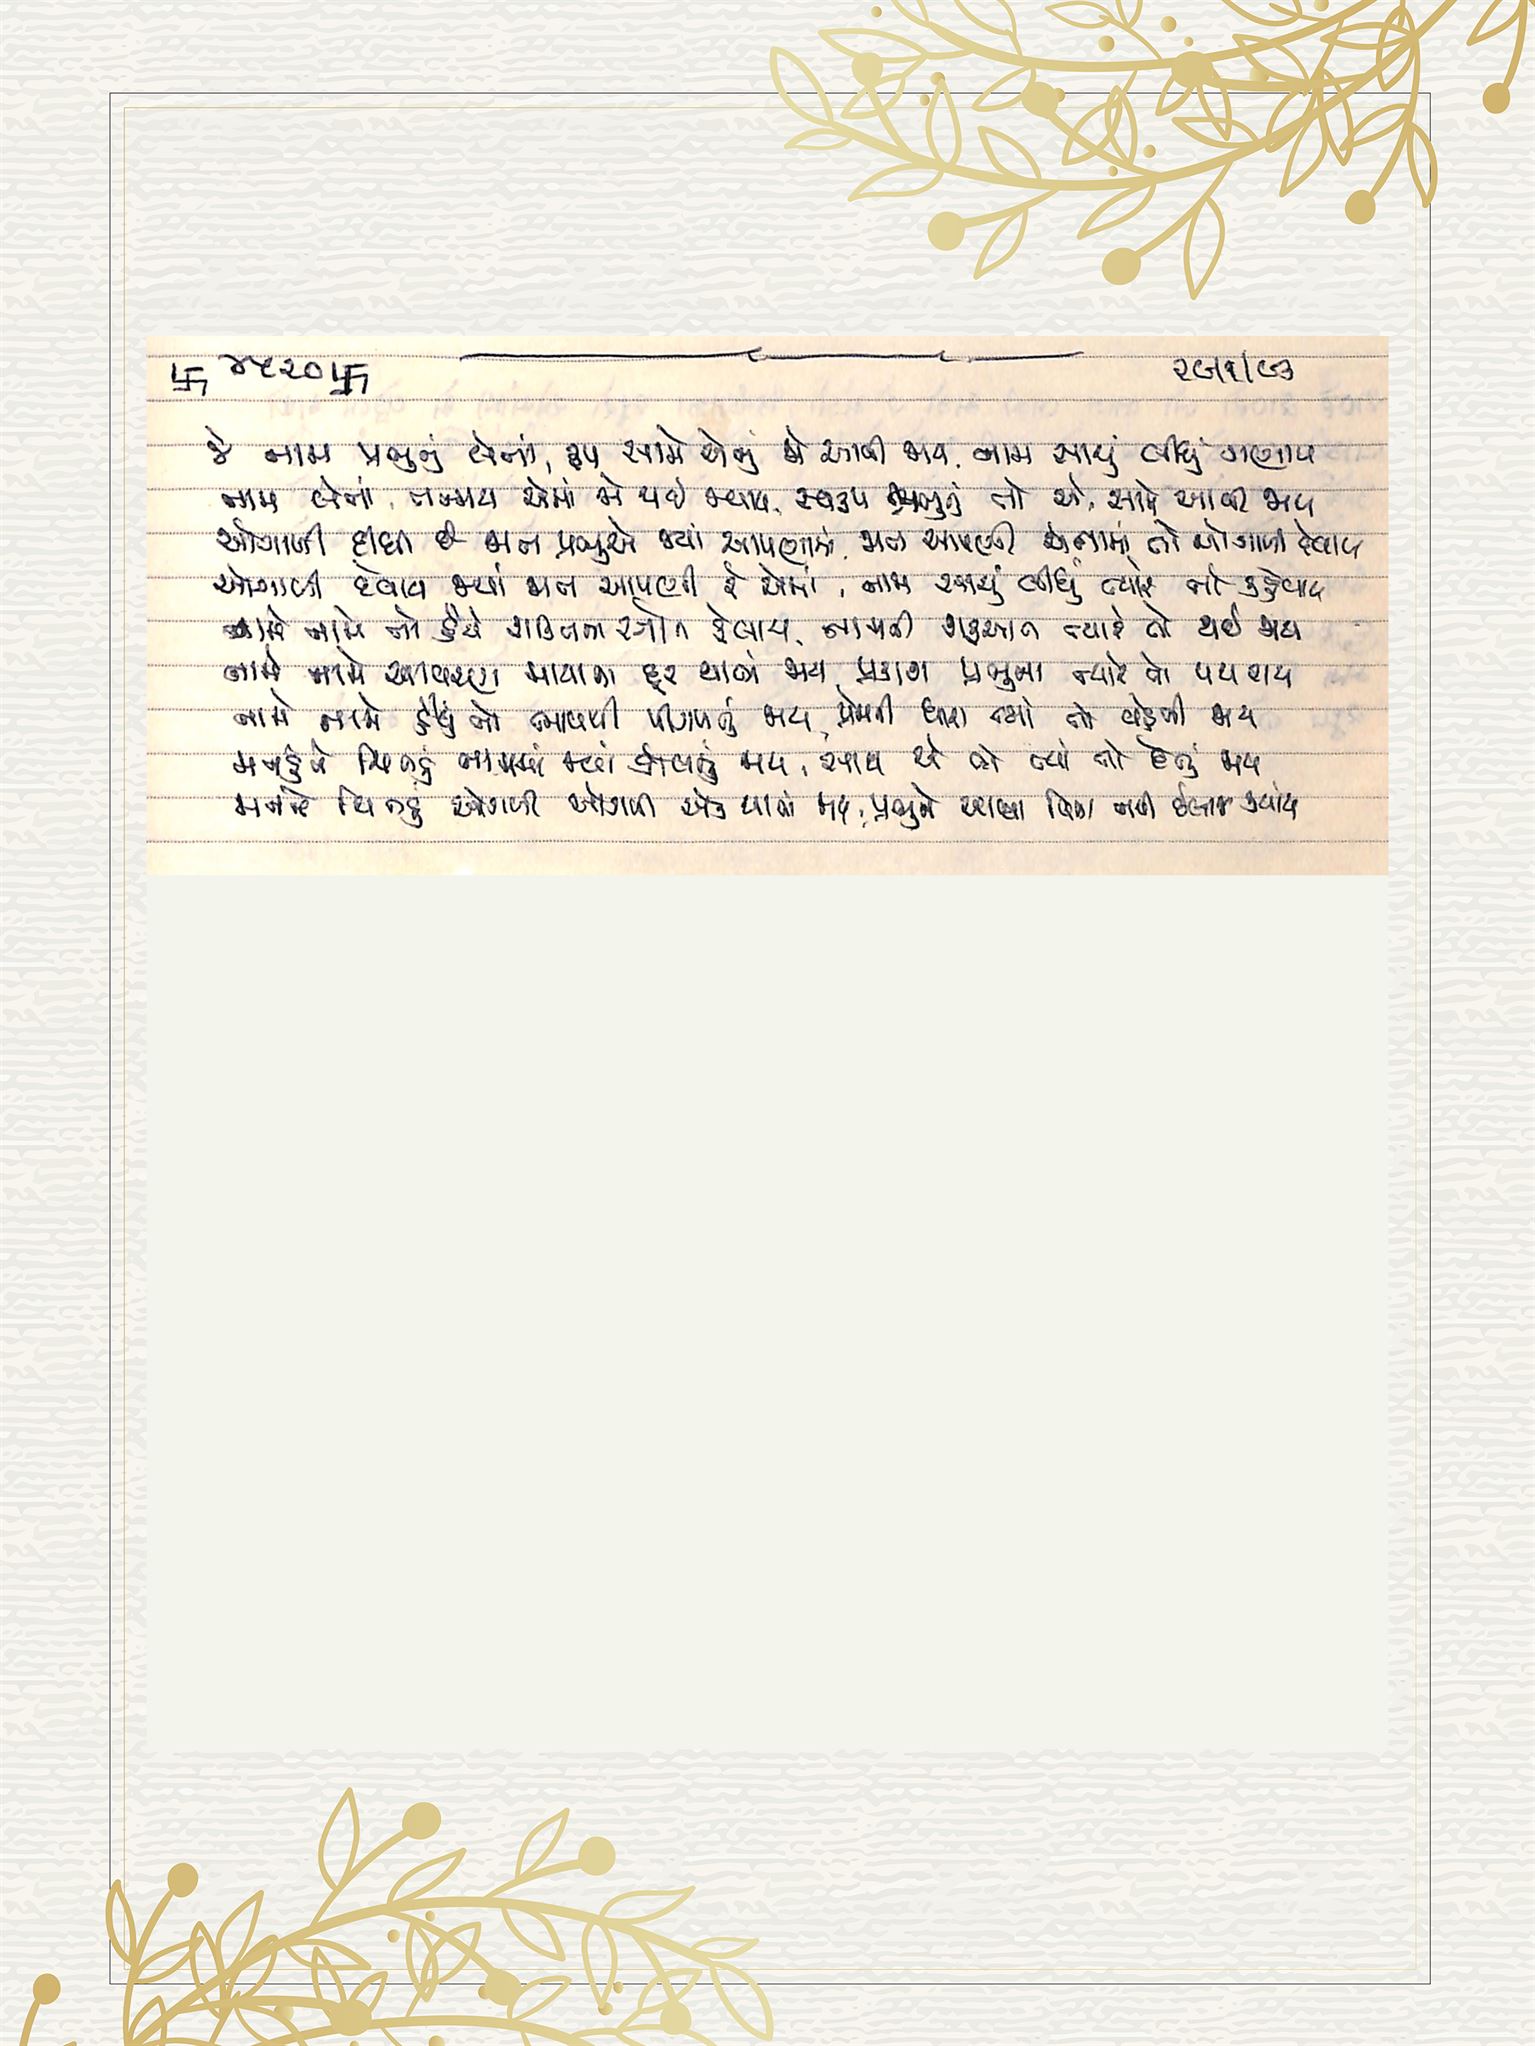 卐 ૪૫૨૦ 卐 ૨૯/૧/૯૩
જે નામ પ્રભુનું લેતાં, રૂપ સામે એનું જે આવી જાય, નામ સાચું લીધું ગણાય
નામ લેતાં, તન્મય એમાં જે થઈ જવાય, સ્વરૂપ પ્રભુનું તો એ, સામે આવી જાય
ઓગાળી દીધી છે જાત પ્રભુએ જ્યાં આપણામાં, જાત આપણી એનામાં તો ઓગાળી દેવાય
ઓગાળી દેવાય જ્યાં જાત આપણી રે એમાં, નામ સાચું લીધું ત્યારે તો કહેવાય
નામે નામે તો હૈયે શક્તિના સ્રોત ફેલાય, નામની શરૂઆત ત્યારે તો થઈ જાય
નામે નામે આવરણ માયાના દૂર થાતાં જાય, પ્રકાશ પ્રભુના ત્યારે તો પથરાય
નામે નામે હૈયું તો ભાવથી પીગળતું જાય, પ્રેમની ધારા ત્યાં તો વહેતી જાય
મનડું ને ચિત્તડું નામમાં જ્યાં જોડાતું જાય, સાથ એ તો ત્યાં તો દેતું જાય
મનડું ચિત્તડું ઓગળી ઓગળી એક થાતાં જાય, પ્રભુને આવ્યા વિના નથી ઈલાજ ક્યાંય